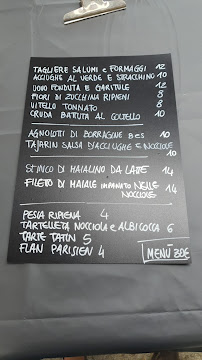 TAGLIERE SALUMI e FORMAGGI 12
ACCIUGHE AL VERDE E STRACCHINO 10
UOVO FONDUTA E GARITULE 12
FIORI DI ZUCCHINA RIPIENI 8
VITELLO TONNATO 8
CRUDA BATTUTA AL COLTELLO 10
AGNOLOTTI DI BORRAGINE B e S 10
TAJARIN SALSA D'ACCIUGHE E NOCCIOLE
10
STINCO DI MAIALINO DA LATTE 14
FILETTO DI MAIALE IMPANATO NELLE 14
NOCCIOLE
PESCA RIPIENA 4
TARTELLETTA NOCCIOLA e ALBICOCCA 6
TARTE TATIN 5
FLAN PARISIEN 4
MENÙ 30€